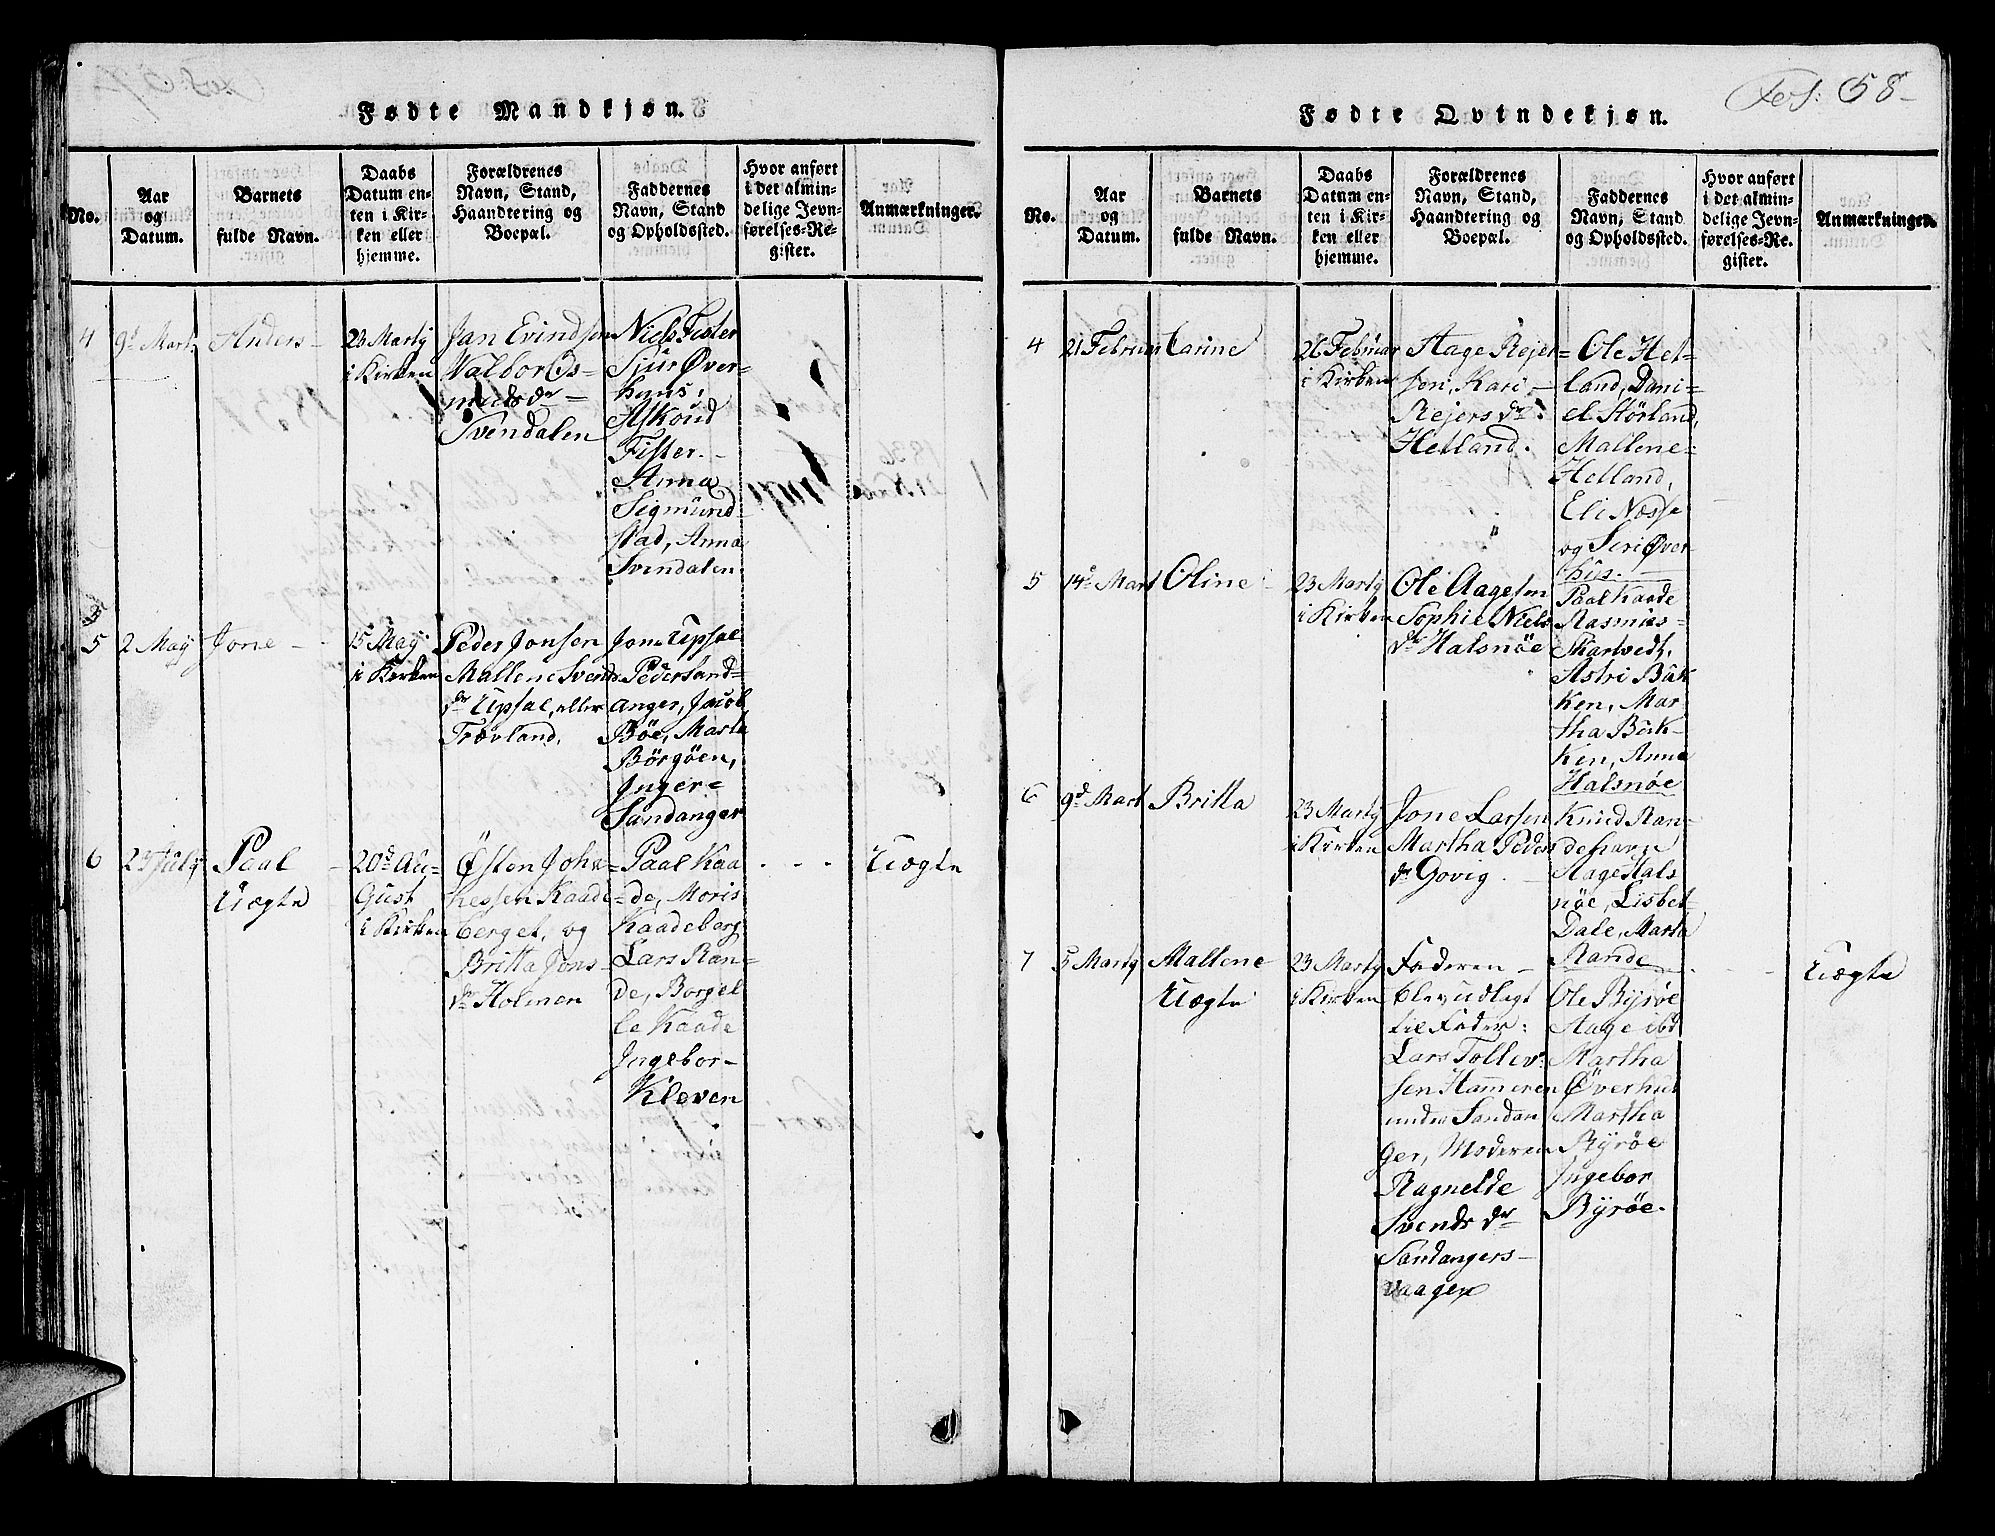 Fol: 58-
Fødte Mandkjøn.
No.
Aar
og
Datum.
Barnets
fulde Navn.
Daabs
Datum en-
ten i Kir-
ken eller
hjemme.
Forældrenes
Navn, Stand,
Haandtering og
Boepæl.
Faddernes
Navn, Stand
og Opholdssted.
Hvor anført
i det almin-
delige Jevn-
førelses-Re-
gister.
Anmærkninger.
4
9d Marti
Anders
23 Martÿ
i Kirken
Jan Evindsen
Valbor Os-
muds dr
Svendalen
Niels Fister
Sjur Øver-
huus,
Askoud
Fister.
Anna
Sigmund
stad, Anna
Svendalen
5
2 Maÿ
Jone
15 Maÿ
i Kirken
Peder Jonsen
Mallene Svends
dr Upsal, eller
Trævland.
Jone Upsal
Peder Sand-
anger, Jacob
Bøe, Marta
Börgöen,
Inger
Sandanger
6
29 Julÿ
Paal
Uægte
20de Au-
gust
i Kirken
Östen Joha-
nessen Kaade-
berget, og
Britta Jons
dr Holmen
Paal Kaa
de, Moris
Kaadeberg
Lars Ran-
de, Borgel
le Kaade
Ingebor
Kleven
Uægte
Fødte Qvindekjøn.
No.
Aar
og
Datum.
Barnets
fulde Navn.
Daabs
Datum en-
ten i Kir-
ken eller
hjemme.
Forældrenes
Navn, Stand,
Haandtering og
Boepæl.
Faddernes
Navn, Stand
og Opholdssted.
Hvor anført
i det almin-
delige Jevn-
førelses-Re-
gister.
Anmærkninger.
4
21 Februar
Carine
26 Februar
i Kirken
Aage Rejer-
sen, Kari
Rejers dr
Hetland.
Ole Het-
land, Dani-
el Störland,
Mallene
Helland,
Eli Næsse
og Seri Øver-
hus.
5
14de Mart
Oline
23 Martÿ
i Kirken
Ole Aagesen
Sophie Niels
dr Halsnöe
Paal Kaade
Rasmus
Skartvedt,
Astri Bak
ken, Mar
tha Bak-
ken, Anna
Halsnöe
6
9d Mart
Britta
23 Martÿ
i Kirken
Jone Larsen
Martha Peders
dr Govig.
Knud Ran-
de
Aage Hals
nöe, Lisbet
Dale, Marta
Rande
7
5 Martÿ
Mallene
Uægte
23 Martÿ
i Kirken
Faderen
blev udlagt
til Fader:
Lars Tollev-
sen Hameren
under Sandan
ger, Moderen
Ragnelde
Svends dr
Sandangers-
vaagen
Ole Bÿröe
Aage ibd
Martha
Øverhus
Martha
Bÿröe
Ingebor
Bÿröe.
Uægte